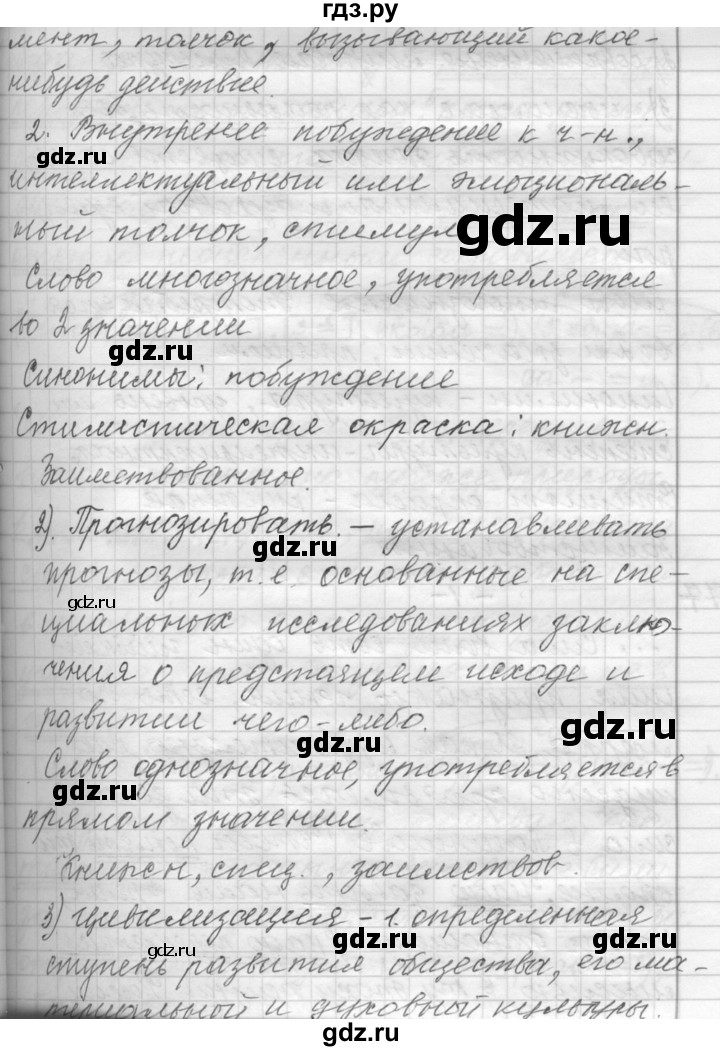 гдз.ру
мент, толчок, вызывающий какое-
нибудь действие.
2. Внутренее побуждение к ч-н.,
gdz.ru
интеллектуальный или эмоциональ-
ный толчок, стимул
gdz.ru
Слово многозначное, употребляется
во 2 значении
gdz.ru
Синонимы: побуждение
Стилистическая окраска: книжн.
Заимствованное.
2). Прогнозировать. – устанавливать
gdz.ru
прогнозы, т.е. основанные на спе-
gdz.ru
циальных исследованиях заклю-
чения о предстаящем исходе и
развитии чего-либо.
gdz.ru
gdz.ru
Слово однозначное, употребляется в
gdz.ru
прямом значении.
Книжн, спец., заимствов.
3) Цивилизация – 1. определенная
gdz.ru
gdz.ru
ступень развития общества, его ма-
териальной и духовной культуры.
gdz.ru